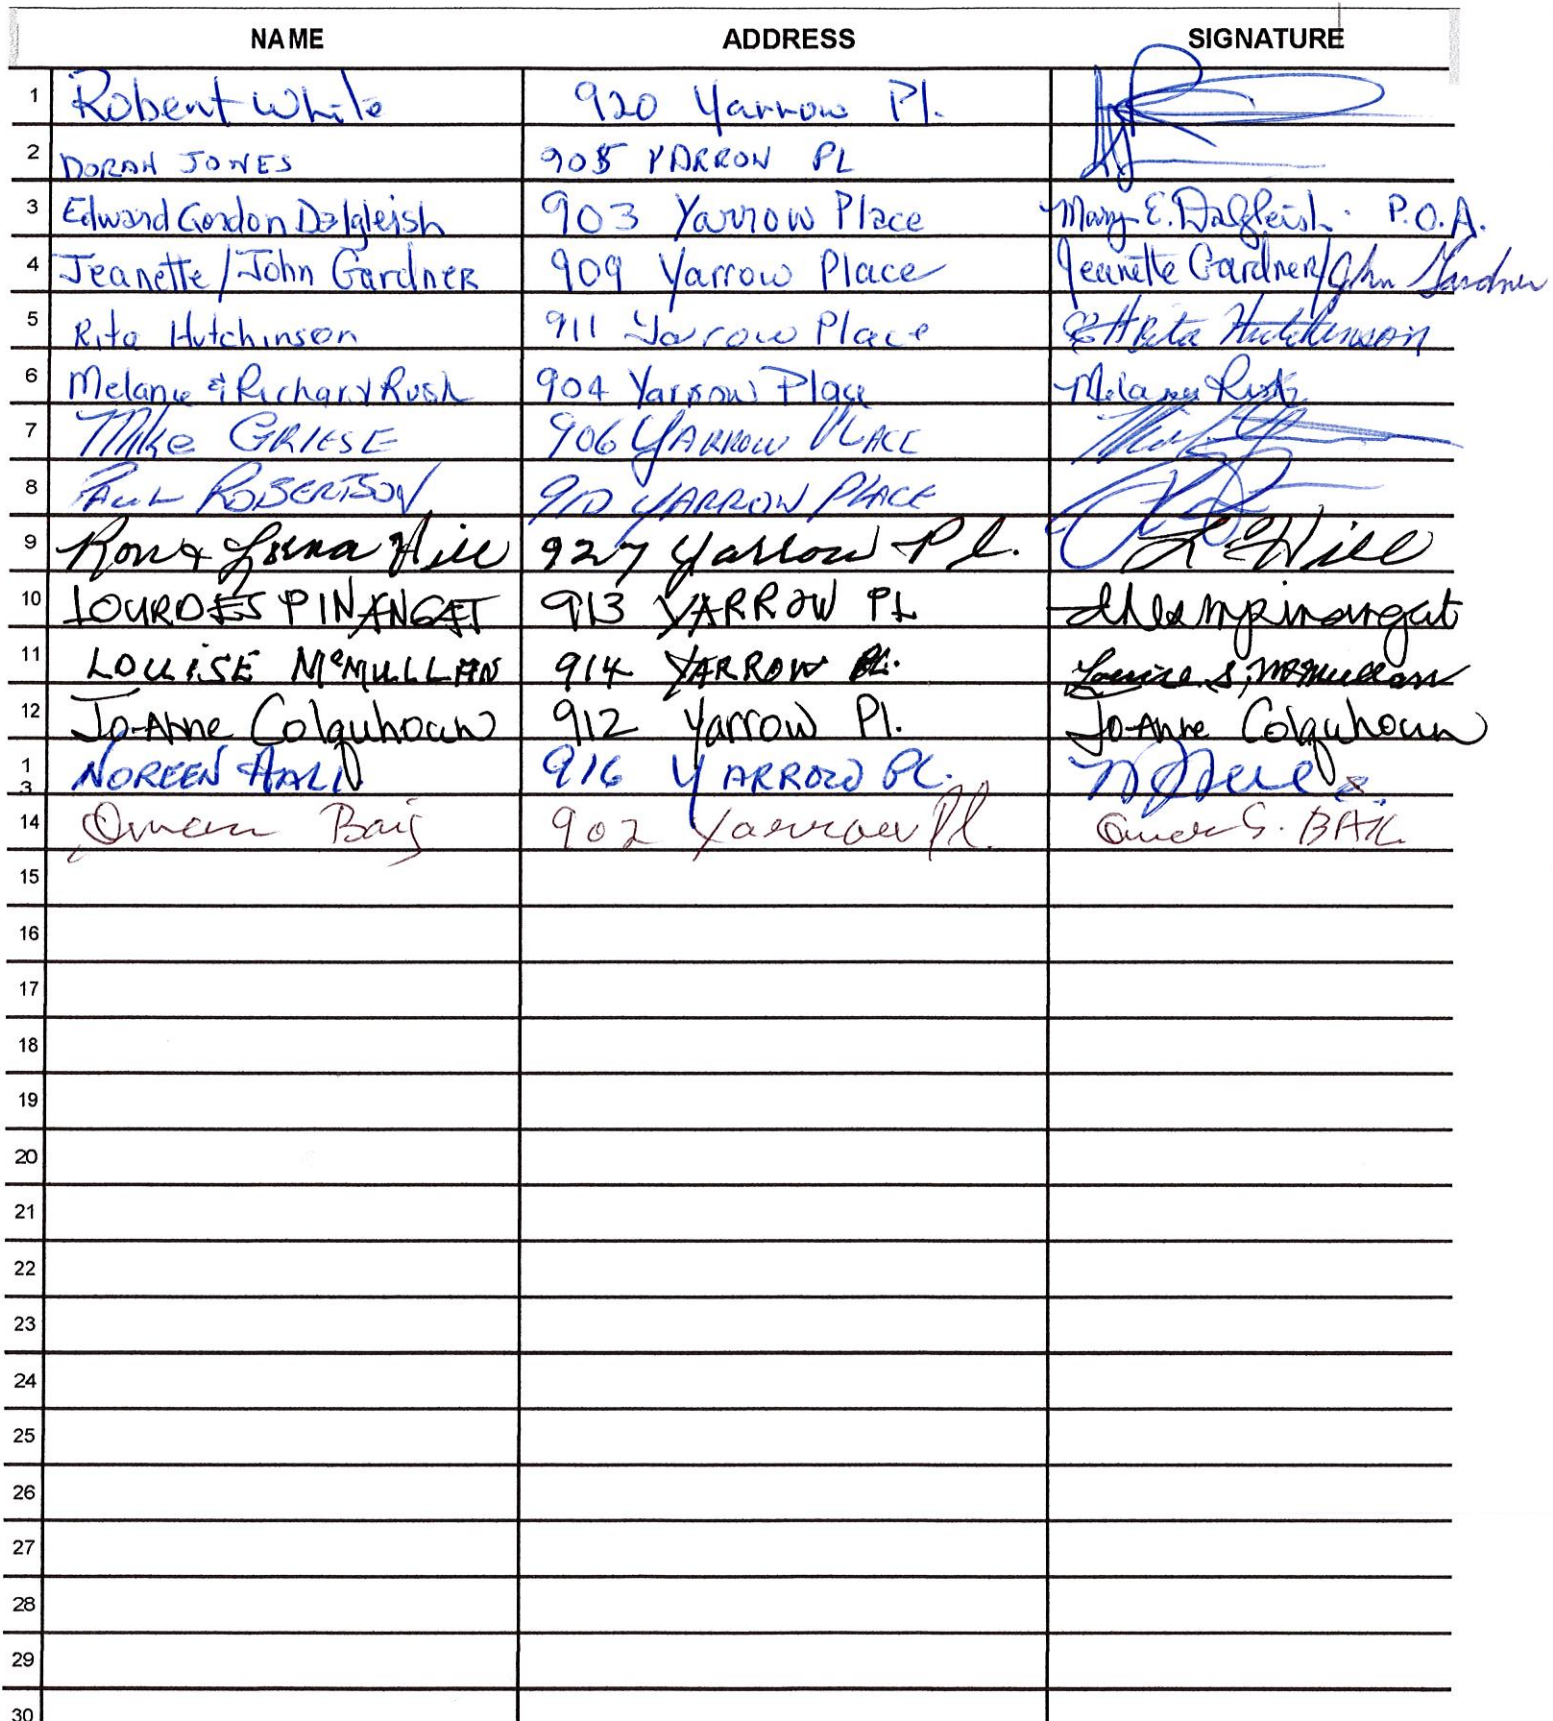 NAME ADDRESS SIGNATURE
1 Robert White 920 Yarrow Pl.
2 DORAN JONES 905 YARROW PL
3 Edward Gordon Dalgleish 903 Yarrow Place Mary E. Dalgleish. P.O.A.
4 Jeanette/John Gardner 909 Yarrow Place Jeanette Gardner/John Gardner
5 Rita Hutchinson 911 Yarrow Place Rita Hutchinson
6 Melanie & Richard Rush 904 Yarrow Place Melanie Rush
7 Mike GRIESE 906 YARROW PLACE
8 PAUL ROBERTSON 910 YARROW PLACE
9 Ron & Lorna Hill 927 Yarrow Pl. L. Hill
10 LOURDES PINANGAT 913 YARROW PL
11 LOUISE McMULLAN 914 YARROW PL. Louise S. McMullan
12 Jo-Anne Colquhoun 912 Yarrow Pl. Jo-Anne Colquhoun
13 NOREEN 916 YARROW PL.
14 Omar Baig 902 Yarrow Pl. Omar G. BAIG
15
16
17
18
19
20
21
22
23
24
25
26
27
28
29
30